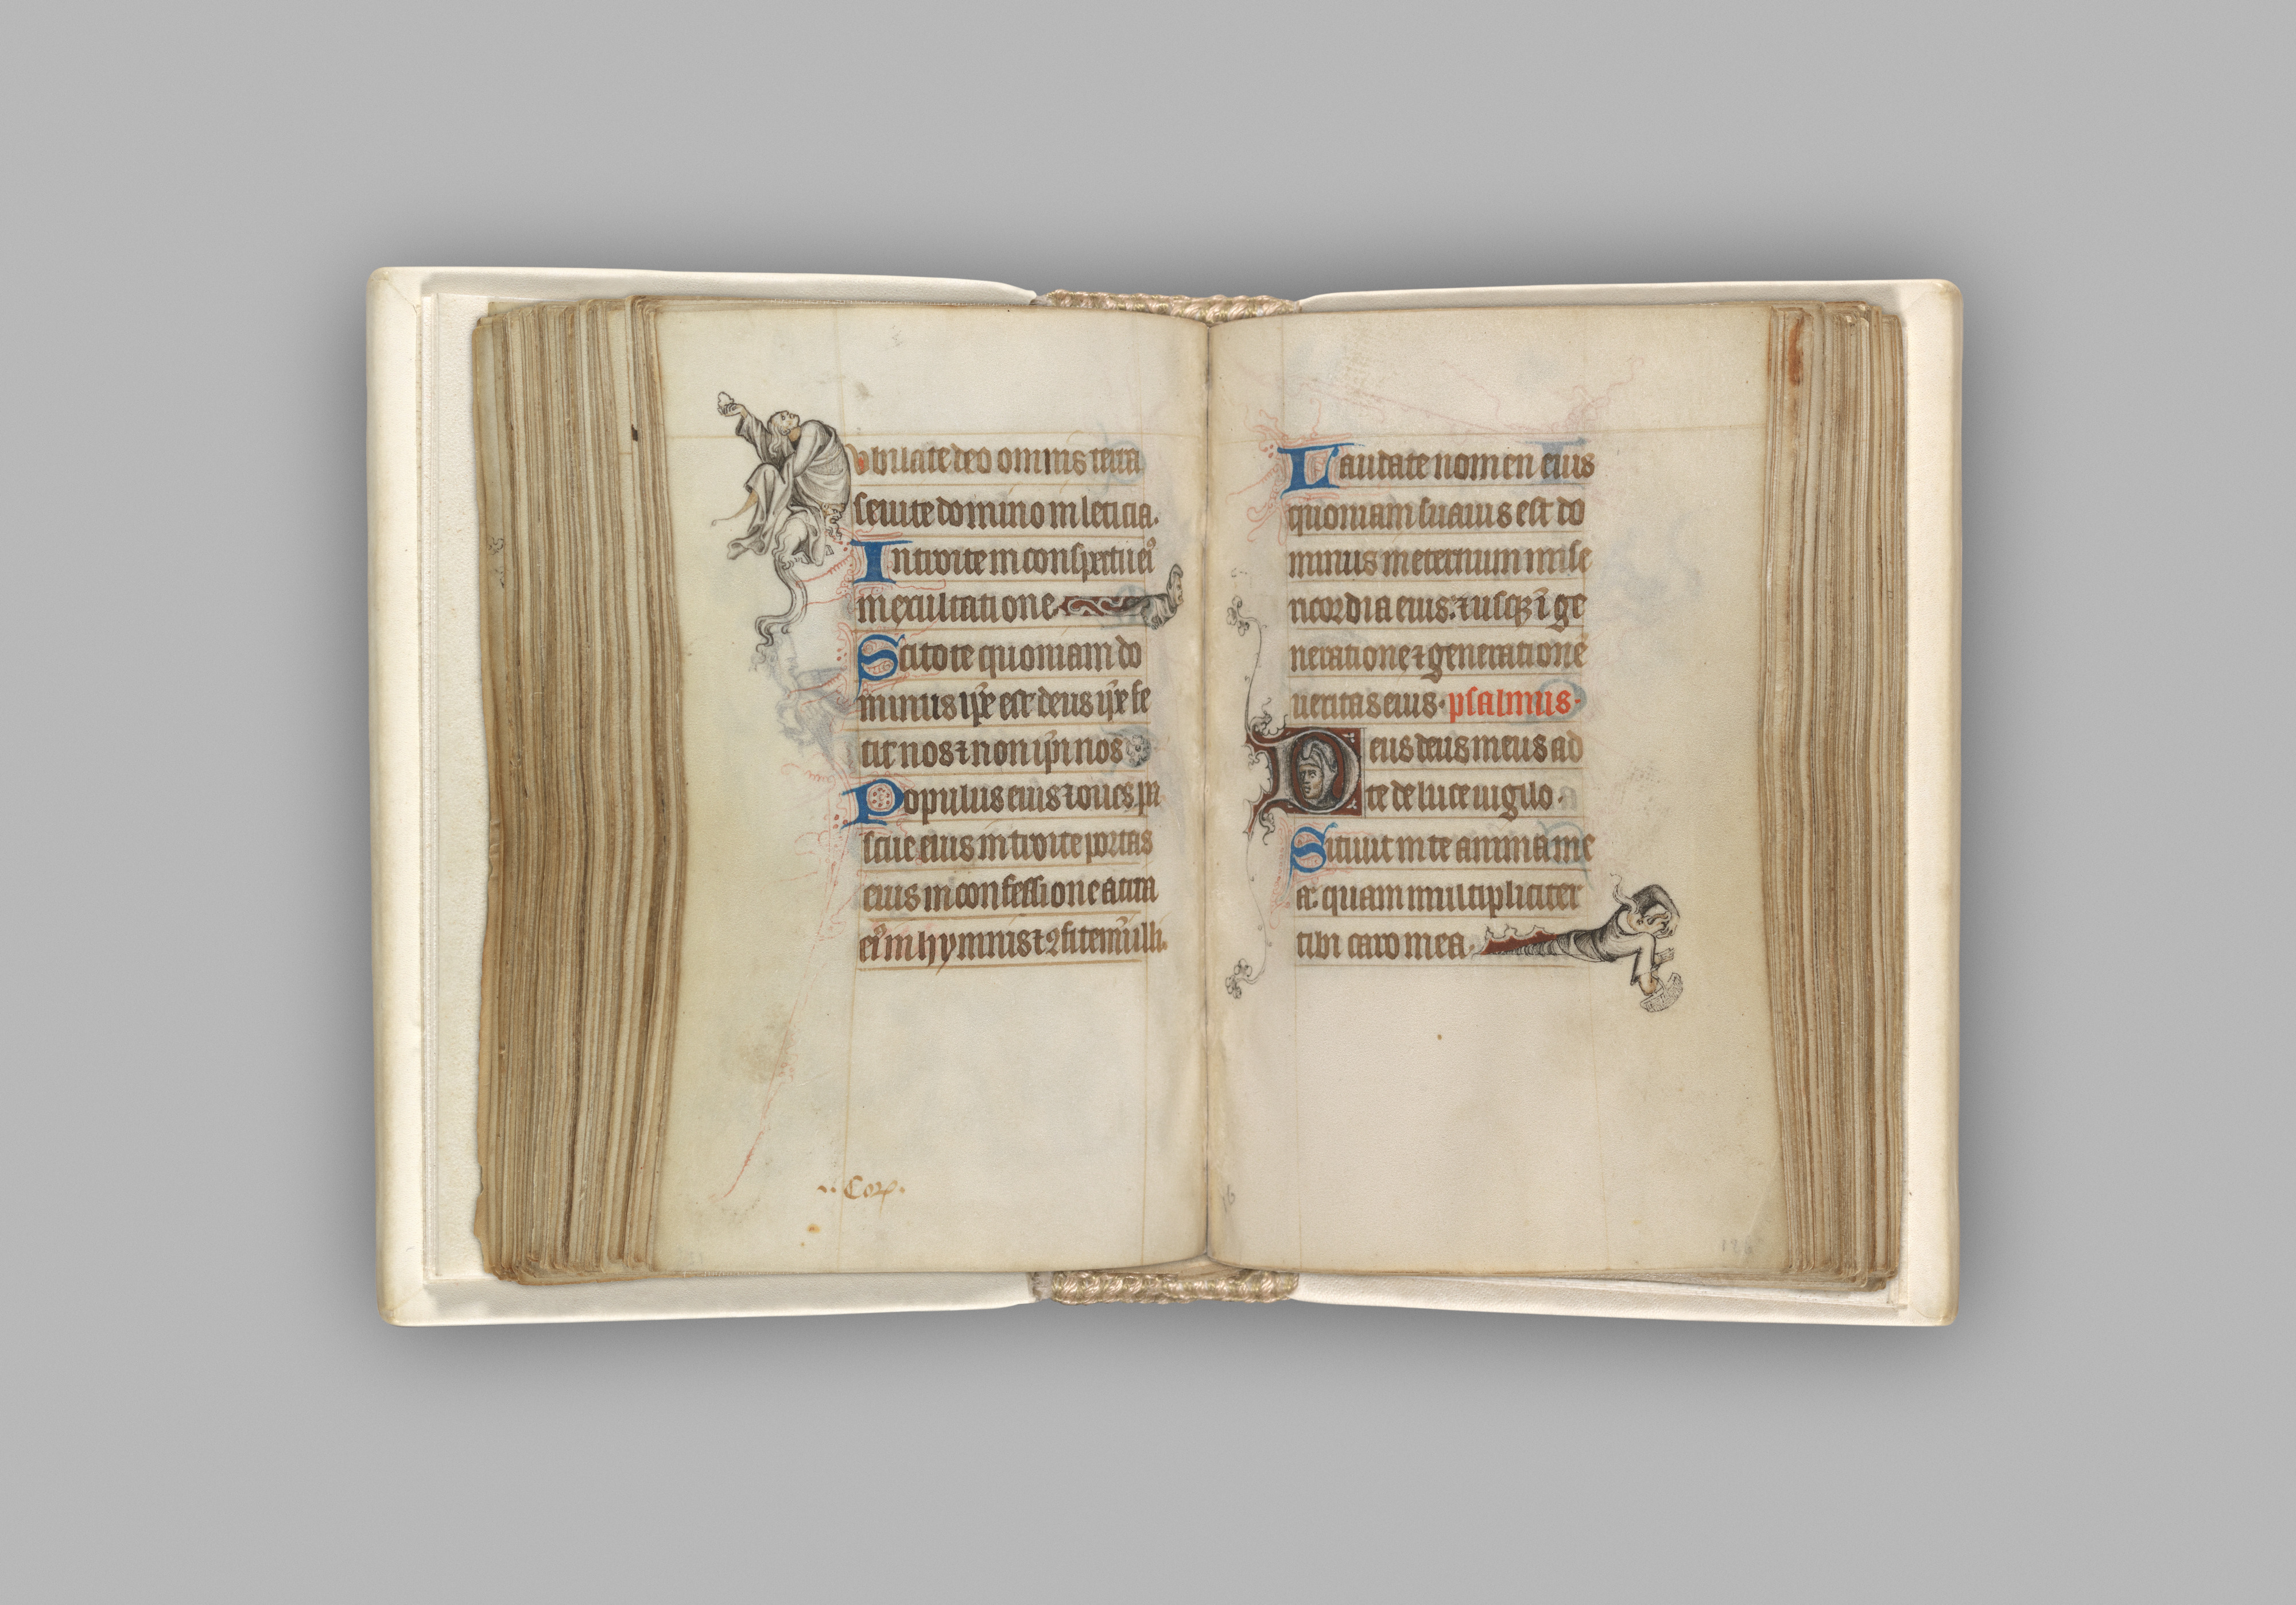 ubilate deo omnis terra
seruite domino in leticia.
Introite in conspectu eiꝰ
in exultatione
Scitote quoniam do
minus ip̄e est deus ip̄e fe
cit nos ⁊ non ip̄i nos
Populus eius ⁊ oues pa
scue eius introite portas
eius in confessione atria
eiꝰ in hymnis ⁊ ꝯfitemī illi.
.. Corp.
Laudate nomen eius
quoniam suauis est do
minus in eternum mise
ricordia eius: ⁊ usqꝫ ī ge
neratione ⁊ generationē
ueritas eius. psalmus.
Deus deus meus ad
te de luce uigilo.
Sitiuit in te anima me
a: quam multipliciter
tibi caro mea.